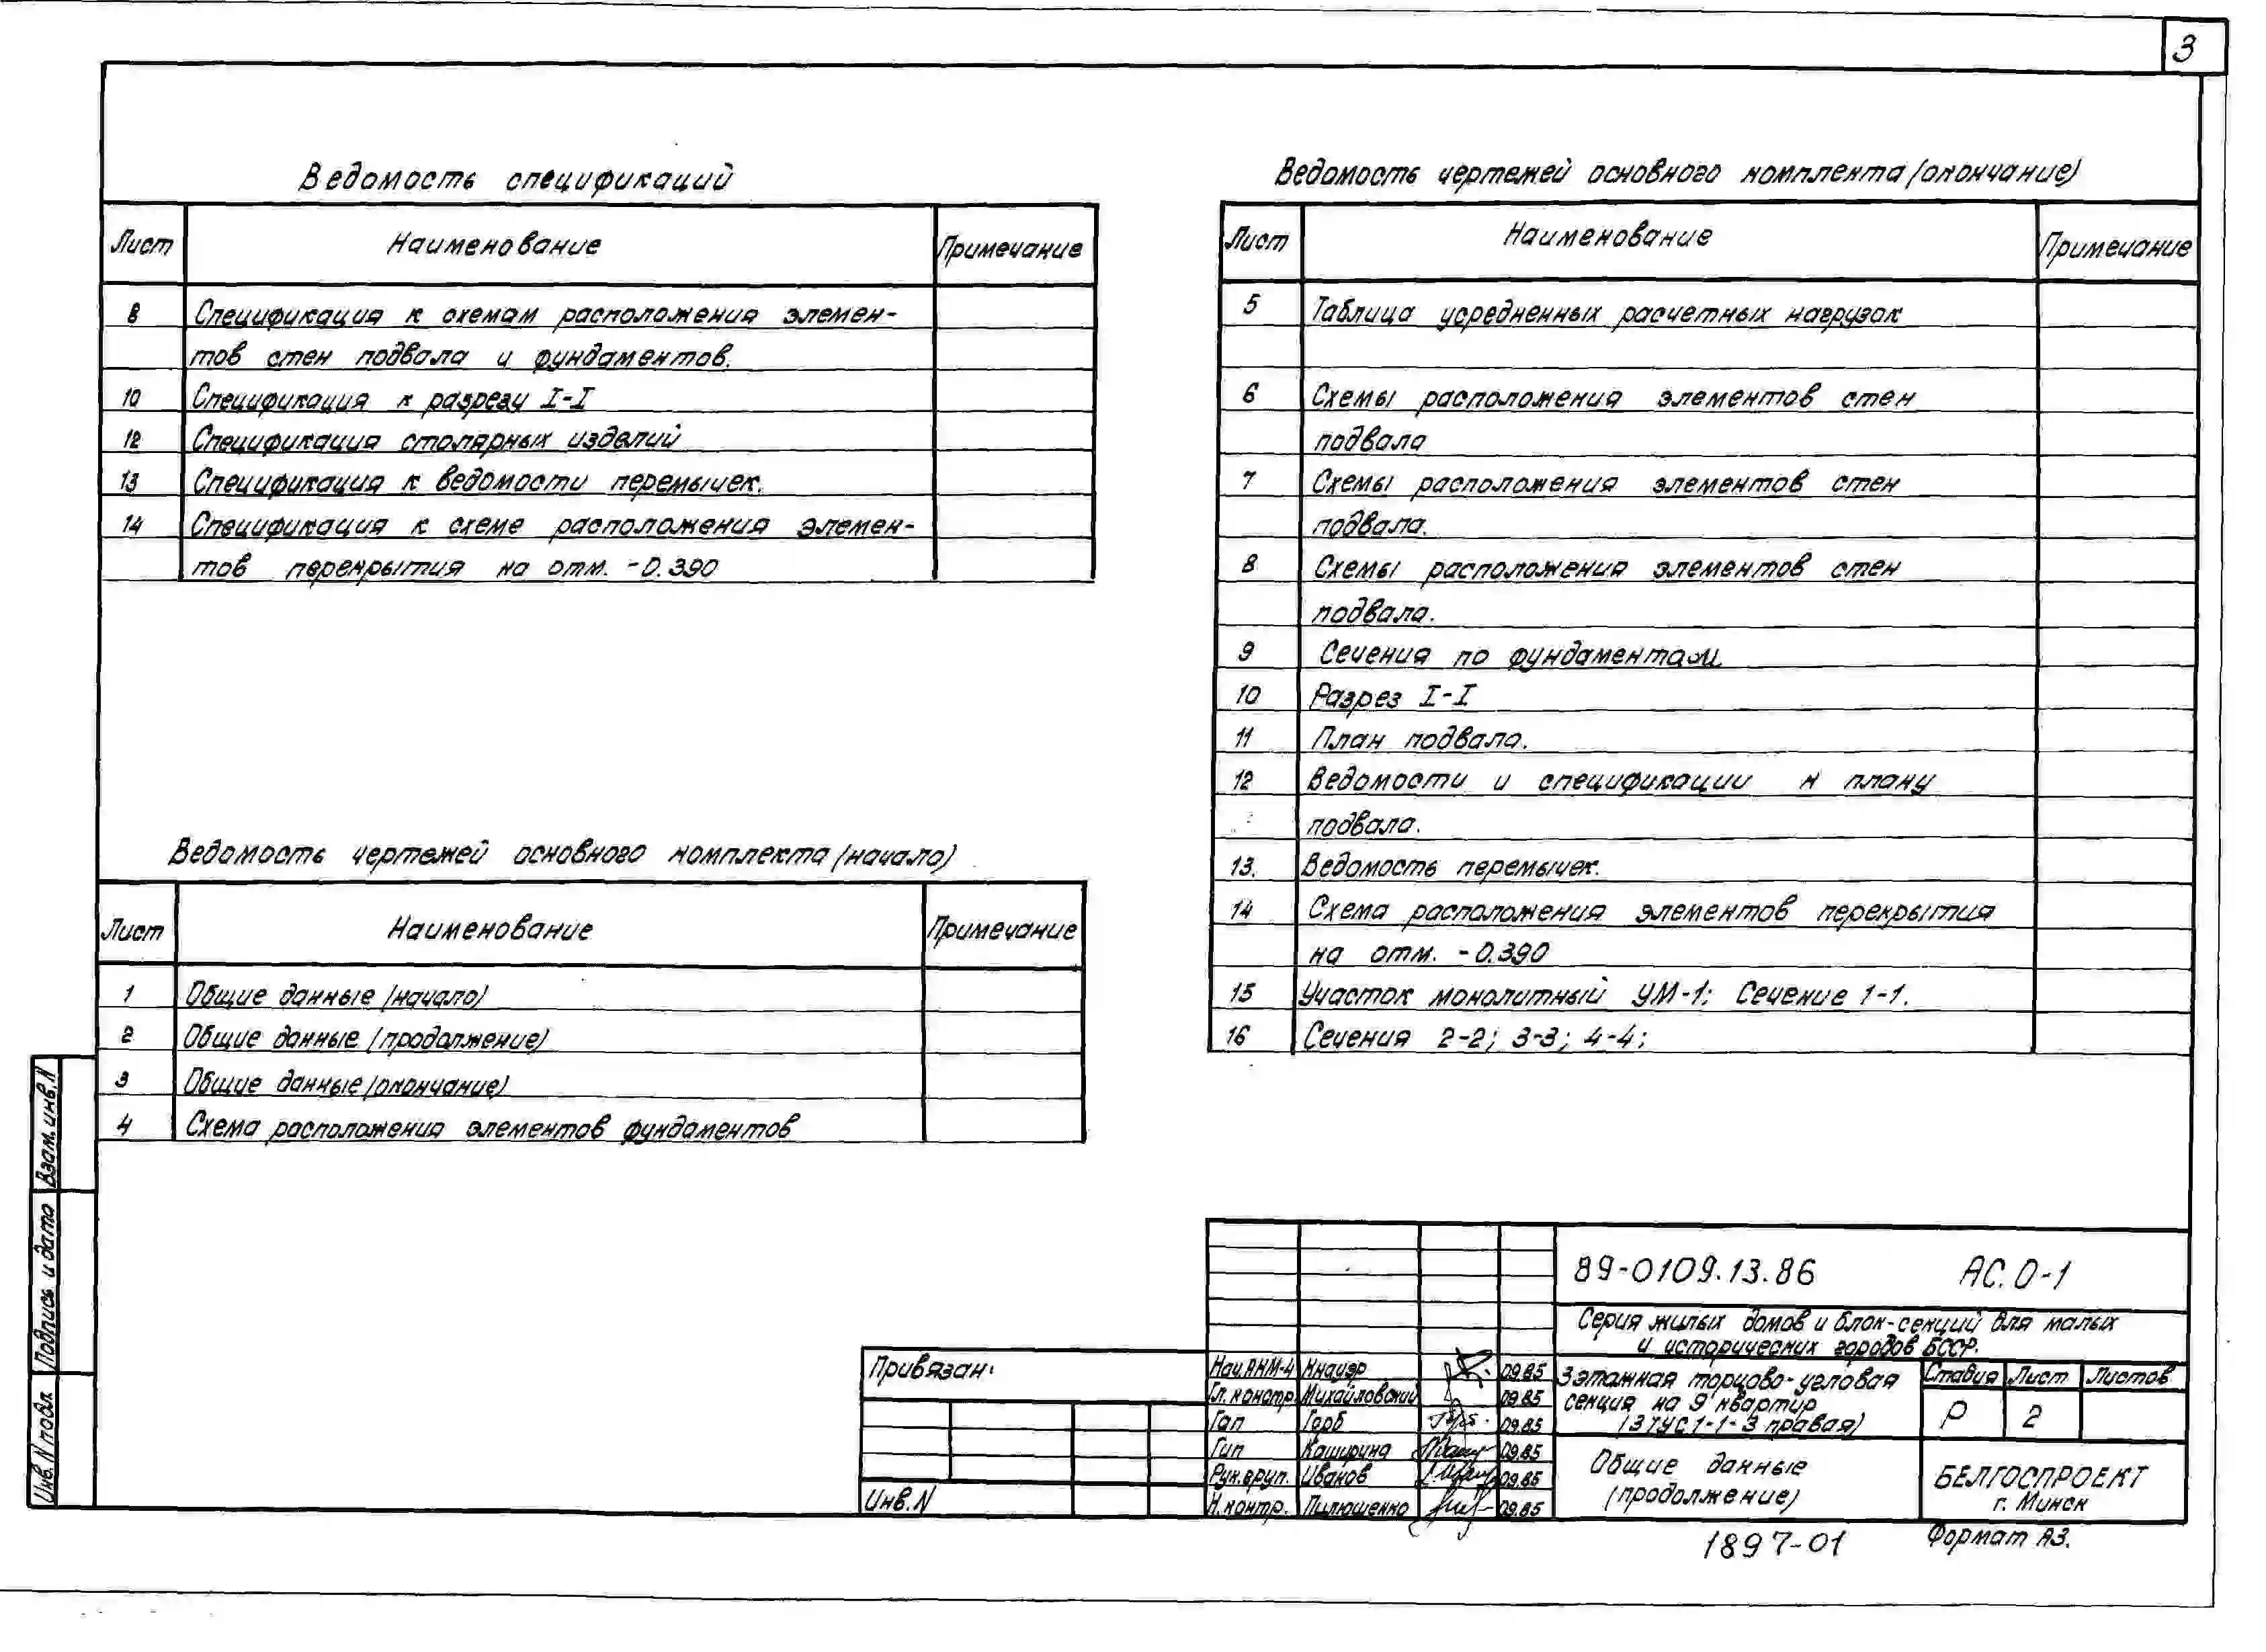 3
Ведомость спецификаций
Лист Наименование Примечание
8 Спецификация к схемам расположения элемен-
тов стен подвала и фундаментов.
10 Спецификация к разрезу I-I
12 Спецификация столярных изделий
13 Спецификация к ведомости перемычек.
14 Спецификация к схеме расположения элемен-
тов перекрытия на отм. -0.390
Ведомость чертежей основного комплекта (начало)
Лист Наименование Примечание
1 Общие данные (начало)
2 Общие данные (продолжение)
3 Общие данные (окончание)
4 Схема расположения элементов фундаментов
Ведомость чертежей основного комплекта (окончание)
Лист Наименование Примечание
5 Таблица усредненных расчетных нагрузок
6 Схемы расположения элементов стен
подвала
7 Схемы расположения элементов стен
подвала.
8 Схемы расположения элементов стен
подвала.
9 Сечения по фундаментам.
10 Разрез I-I
11 План подвала.
12 Ведомости и спецификации к плану
подвала.
13. Ведомость перемычек.
14 Схема расположения элементов перекрытия
на отм. -0.390
15 Участок монолитный УМ-1; Сечение 1-1.
16 Сечения 2-2; 3-3; 4-4;
Взам. инв. N
Подпись и дата
Инв. N подл
Привязан:
Инв. N
89-0109.13.86 АС. 0-1
Серия жилых домов и блок-секций для малых
и исторических городов БССР.
Нач. АКМ-4 Кнауэр 09.85
Гл. констр. Михайловский 09.85
Гап Горб 09.85
Гип Каширина 09.85
Рук. груп. Иванов 09.85
Н. контр. Пилюшенко 09.85
3 этажная торцово-угловая
секция на 9 квартир
(3ТУС 1-1-3 правая)
Стадия Лист Листов
Р 2
Общие данные
(продолжение)
БЕЛГОСПРОЕКТ
г. Минск
1897-01
Формат А3.